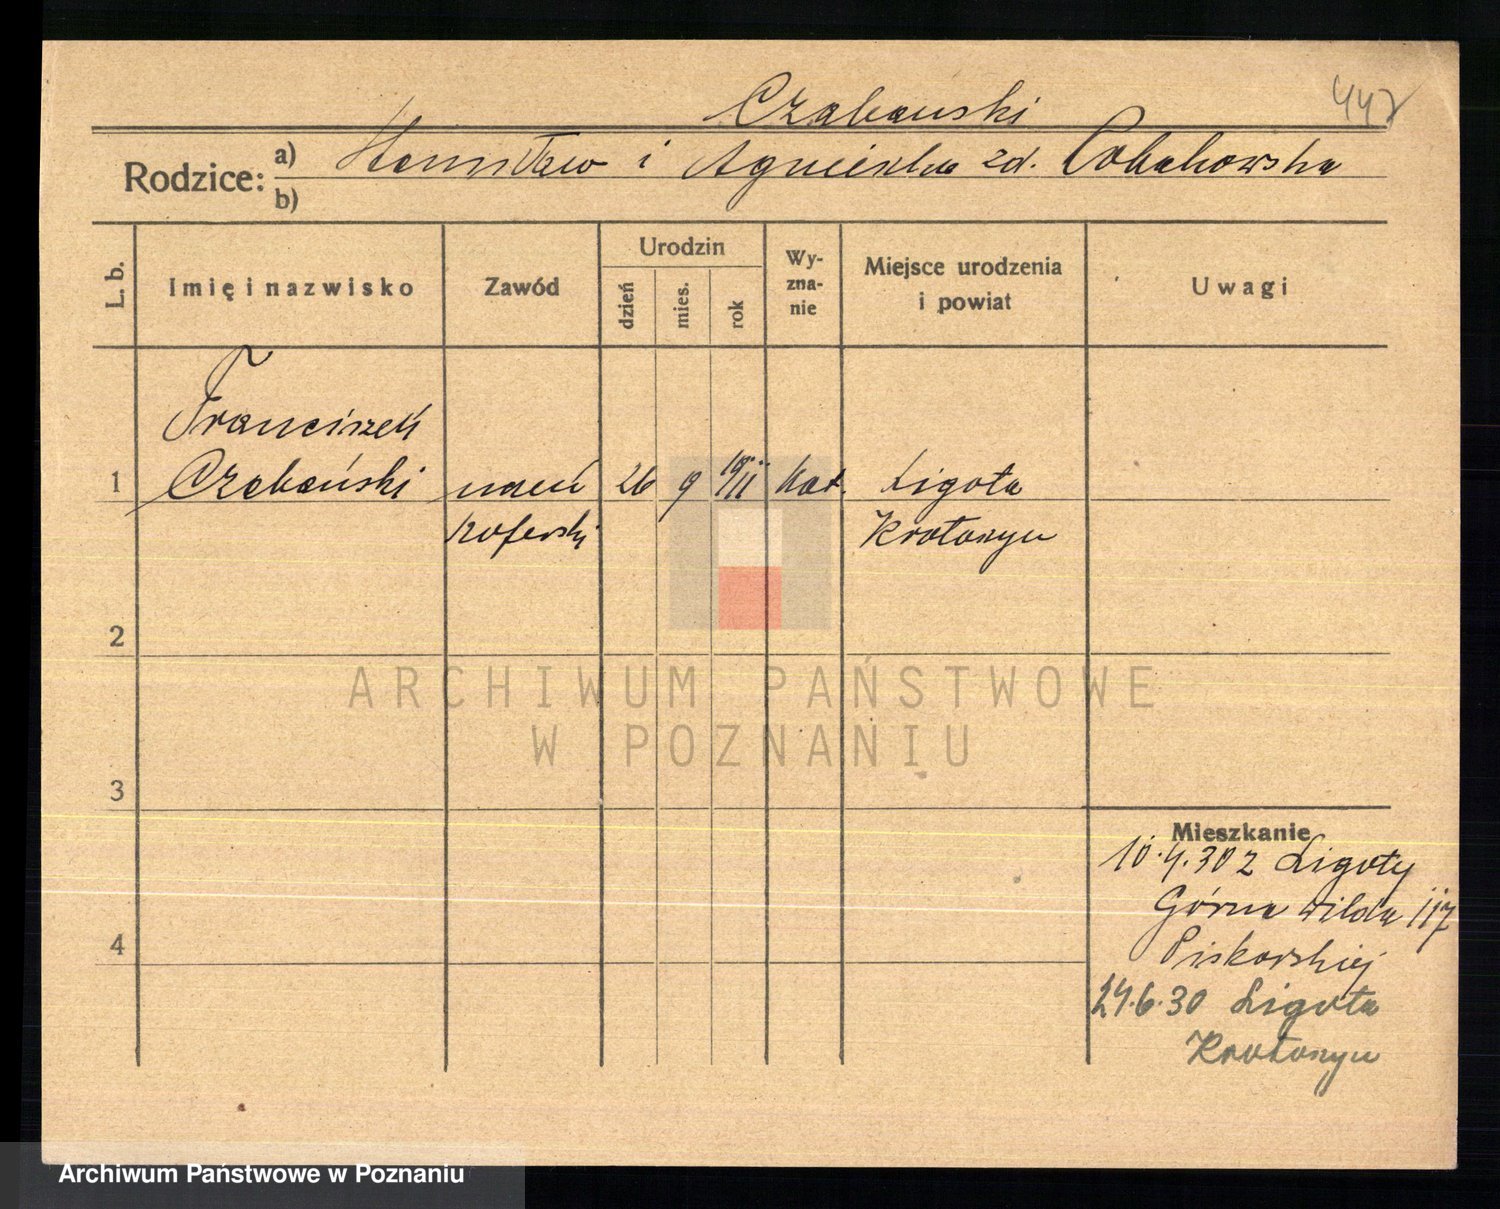 Czabański
447
Rodzice: a) Stanisław i Agnieszka zd.
b)
L. b.
Imię i nazwisko
Zawód
Urodzin
dzień
mies.
rok
Wy-
zna-
nie
Miejsce urodzenia
i powiat
Uwagi
Franciszek
1 Czabański 26 9 1911 kat. Ligota
Krotoszyn
2
ARCHIWUM PAŃSTWOWE
W POZNANIU
3
Mieszkanie
10.4.30 z Ligoty
Górna Wilda 117
4
Piskorskiej
24.6.30 Ligota
Krotoszyn
Archiwum Państwowe w Poznaniu